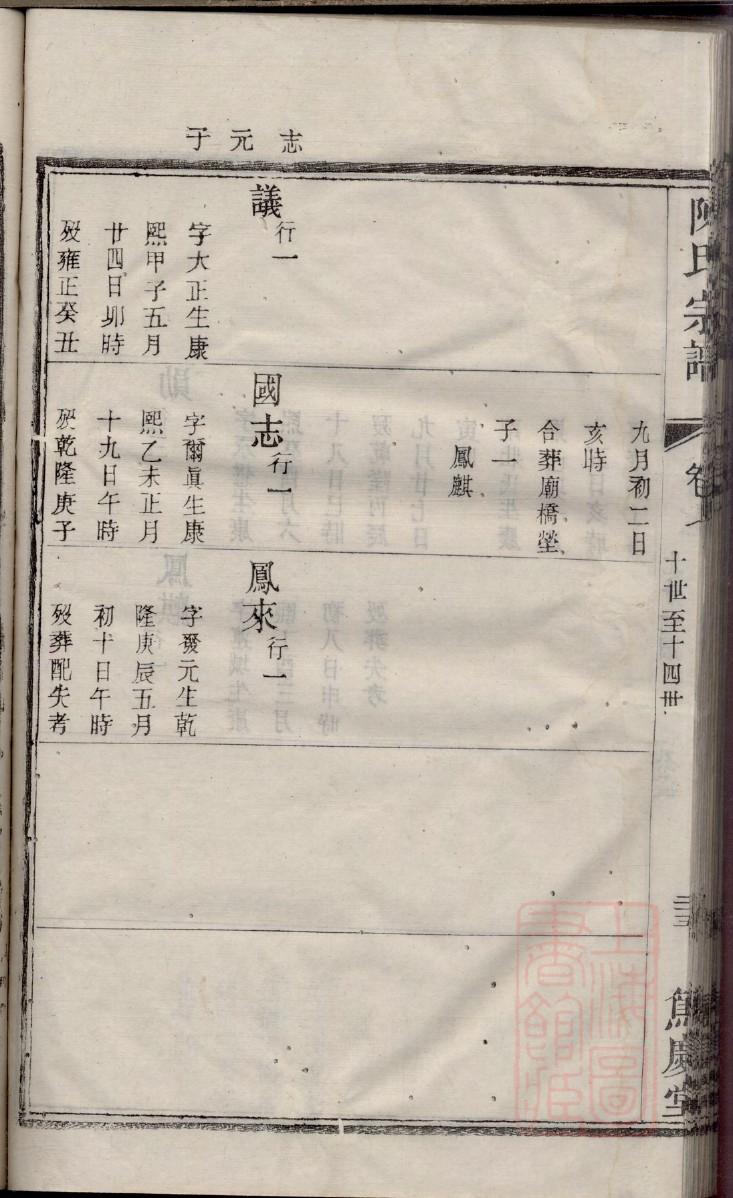 志元子
陳氏宗譜
十世至十四世
議行一
字大正生康
熙甲子五月
廿四日卯時
歿雍正癸丑
九月初二日
亥時
合葬廟橋塋
子一
鳳麒
國志行一
字爾眞生康
熙乙未正月
十九日午時
歿乾隆庚子
鳳來行一
字發元生乾
隆庚辰五月
初十日午時
歿葬配失考
慶堂
上海圖書館藏